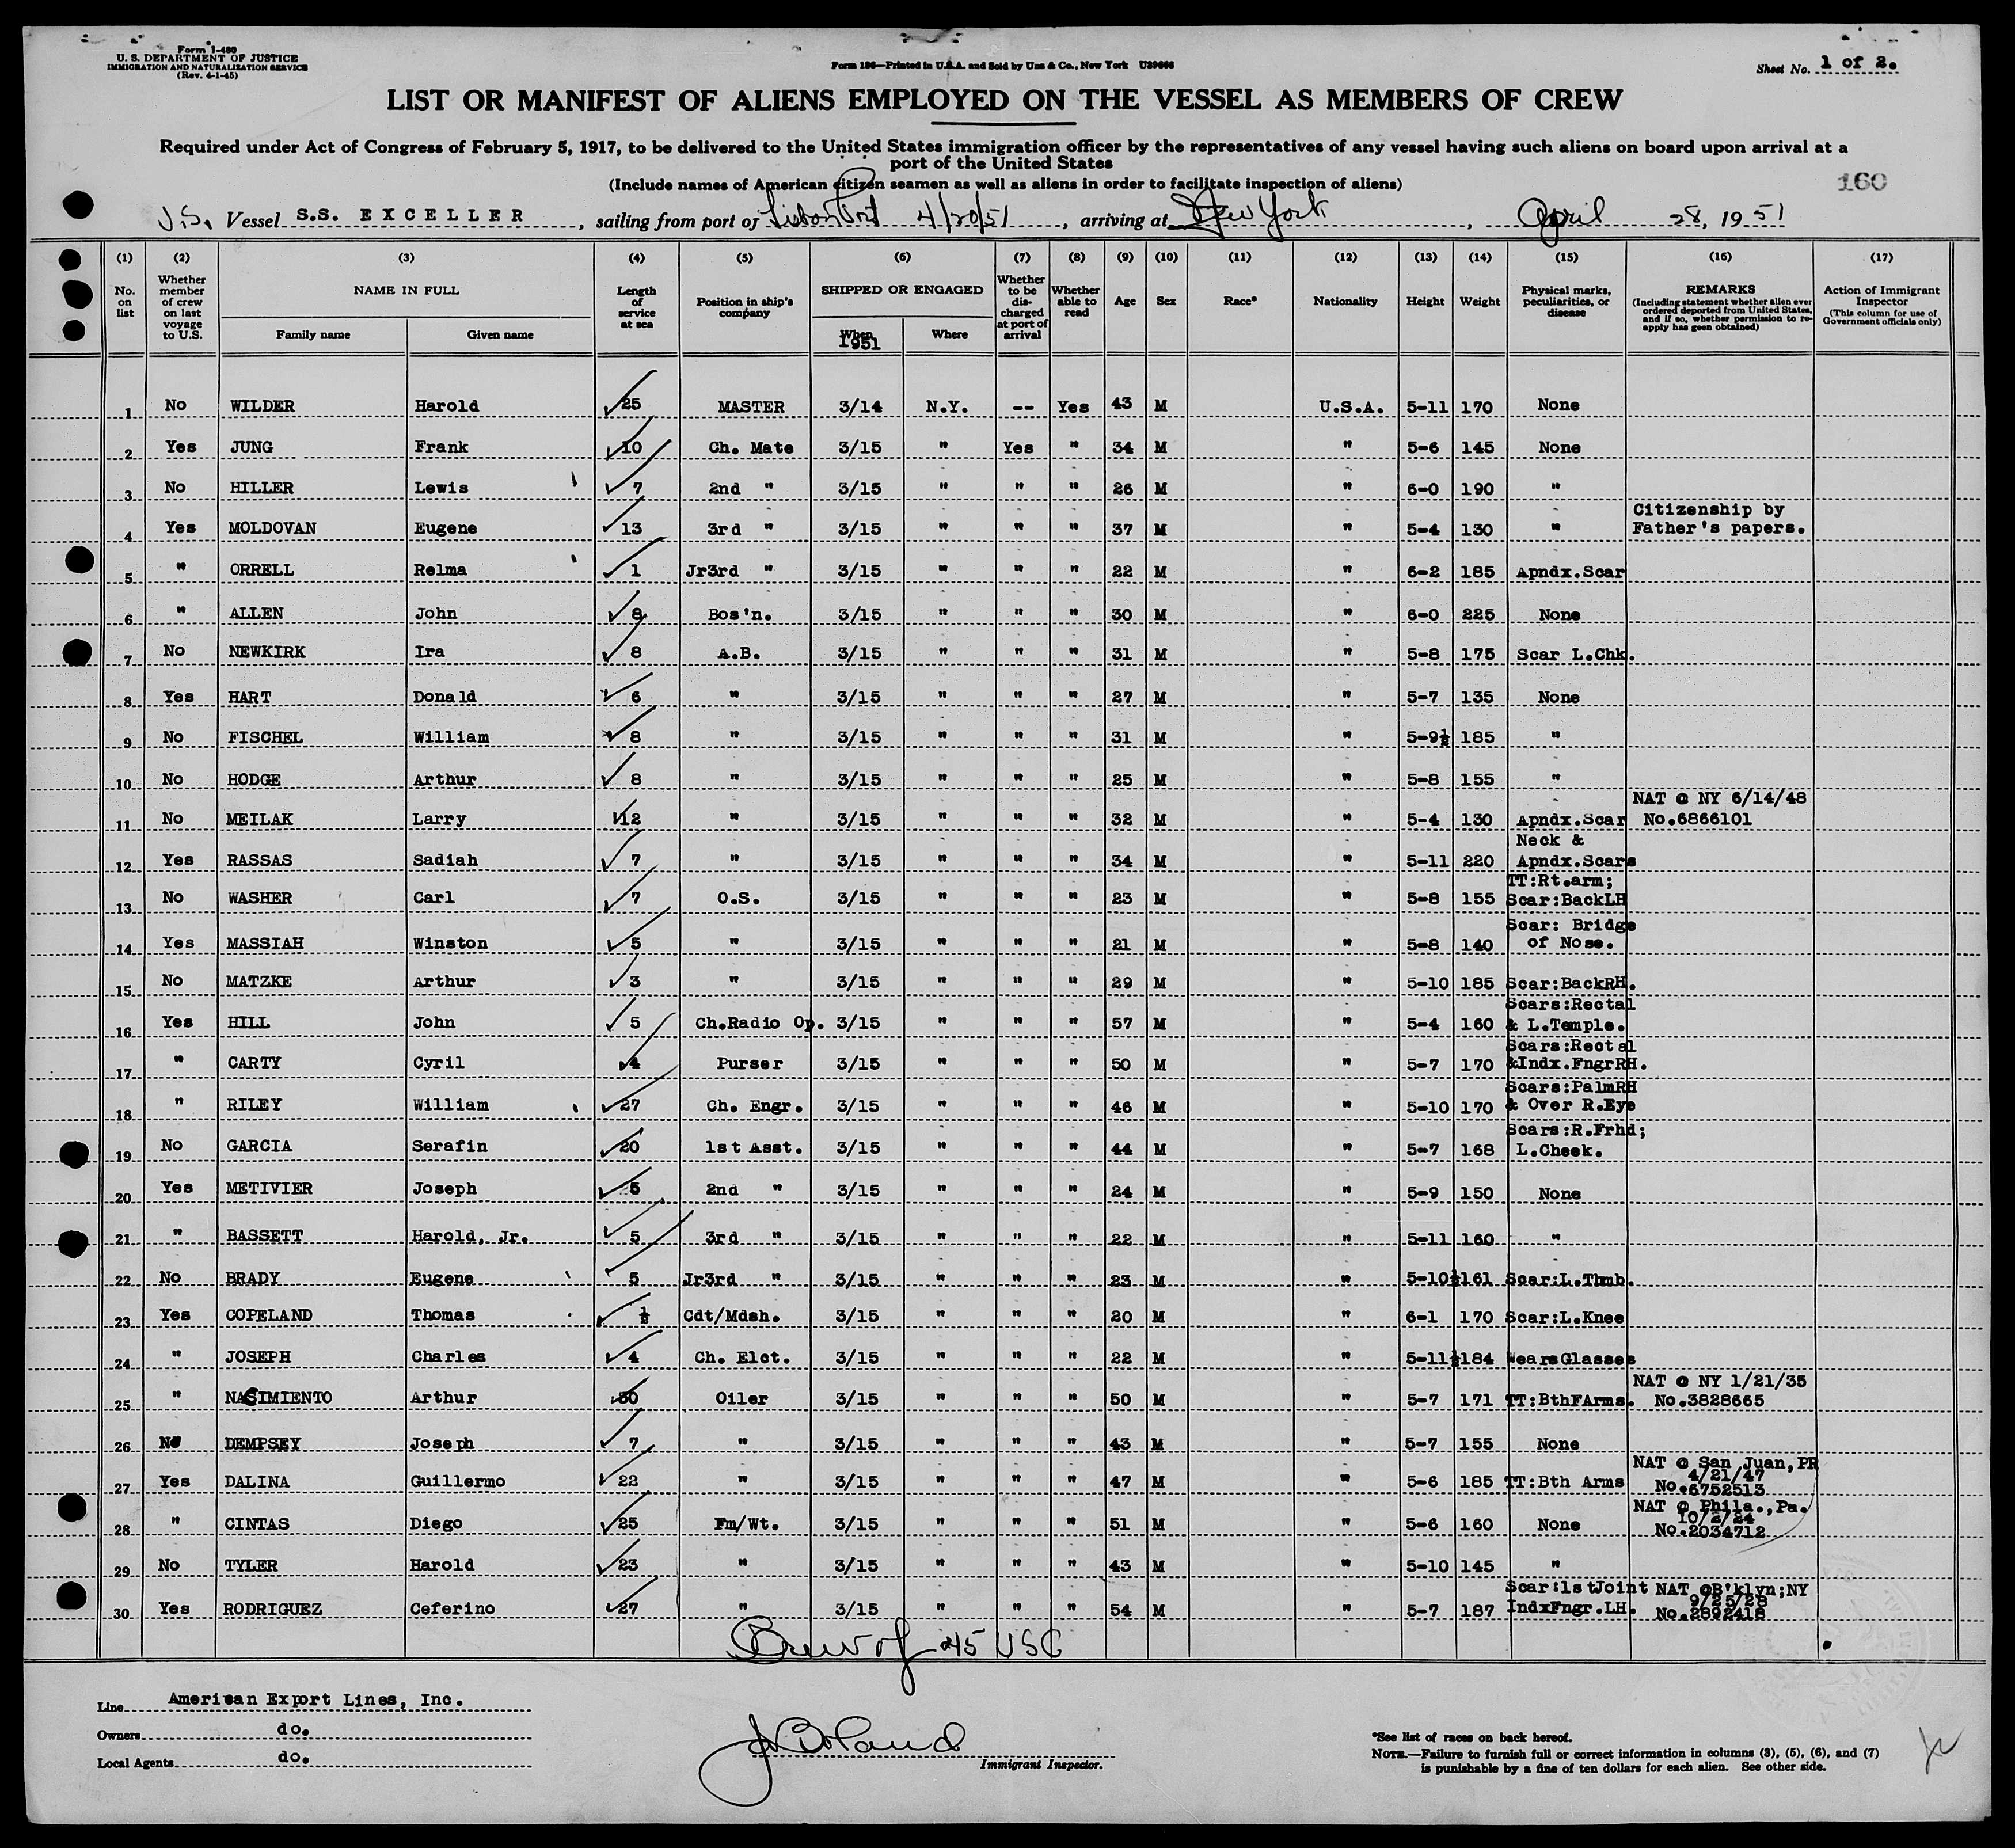 Form I-480
U. S. DEPARTMENT OF JUSTICE
IMMIGRATION AND NATURALIZATION SERVICE
(Rev. 4-1-45)
Form 186—Printed in U.S.A. and Sold by Unz & Co., New York U39666
Sheet No. 1 of 2.
LIST OR MANIFEST OF ALIENS EMPLOYED ON THE VESSEL AS MEMBERS OF CREW
Required under Act of Congress of February 5, 1917, to be delivered to the United States immigration officer by the representatives of any vessel having such aliens on board upon arrival at a
port of the United States
(Include names of American citizen seamen as well as aliens in order to facilitate inspection of aliens)
160
U.S. Vessel S.S. EXCELLER, sailing from port of Lisbon Port 4/20/51, arriving at New York, April 28, 1951
(1) (2) (3) (4) (5) (6) (7) (8) (9) (10) (11) (12) (13) (14) (15) (16) (17)
No. on list
Whether member of crew on last voyage to U.S.
NAME IN FULL
Family name Given name
Length of service at sea
Position in ship's company
SHIPPED OR ENGAGED
When 1951 Where
Whether to be discharged at port of arrival
Whether able to read
Age Sex Race* Nationality Height Weight
Physical marks, peculiarities, or disease
REMARKS
(Including statement whether alien ever ordered deported from United States, and if so, whether permission to re-apply has geen obtained)
Action of Immigrant Inspector
(This column for use of Government officials only)
1 No WILDER Harold 25 MASTER 3/14 N.Y. -- Yes 43 M U.S.A. 5-11 170 None
2 Yes JUNG Frank 10 Ch. Mate 3/15 " Yes " 34 M " 5-6 145 None
3 No HILLER Lewis 7 2nd " 3/15 " " " 26 M " 6-0 190 "
4 Yes MOLDOVAN Eugene 13 3rd " 3/15 " " " 37 M " 5-4 130 " Citizenship by Father's papers.
5 " ORRELL Relma 1 Jr3rd " 3/15 " " " 22 M " 6-2 185 Apndx.Scar
6 " ALLEN John 8 Bos'n. 3/15 " " " 30 M " 6-0 225 None
7 No NEWKIRK Ira 8 A.B. 3/15 " " " 31 M " 5-8 175 Scar L.Chk.
8 Yes HART Donald 6 " 3/15 " " " 27 M " 5-7 135 None
9 No FISCHEL William 8 " 3/15 " " " 31 M " 5-9½ 185 "
10 No HODGE Arthur 8 " 3/15 " " " 25 M " 5-8 155 "
11 No MEILAK Larry 12 " 3/15 " " " 32 M " 5-4 130 Apndx.Scar NAT @ NY 6/14/48 No.6866101
12 Yes RASSAS Sadiah 7 " 3/15 " " " 34 M " 5-11 220 Neck & Apndx.Scars
13 No WASHER Carl 7 O.S. 3/15 " " " 23 M " 5-8 155 TT:Rt.arm; Scar:BackLH
14 Yes MASSIAH Winston 5 " 3/15 " " " 21 M " 5-8 140 Scar: Bridge of Nose.
15 No MATZKE Arthur 3 " 3/15 " " " 29 M " 5-10 185 Scar:BackRH.
16 Yes HILL John 5 Ch.Radio Op. 3/15 " " " 57 M " 5-4 160 Scars:Rectal & L.Temple.
17 " CARTY Cyril 4 Purser 3/15 " " " 50 M " 5-7 170 Scars:Rectal &Indx.FngrRH.
18 " RILEY William 27 Ch. Engr. 3/15 " " " 46 M " 5-10 170 Scars:PalmRH & Over R.Eye
19 No GARCIA Serafin 20 1st Asst. 3/15 " " " 44 M " 5-7 168 Scars:R.Frhd; L.Cheek.
20 Yes METIVIER Joseph 5 2nd " 3/15 " " " 24 M " 5-9 150 None
21 " BASSETT Harold, Jr. 5 3rd " 3/15 " " " 22 M " 5-11 160 "
22 No BRADY Eugene 5 Jr3rd " 3/15 " " " 23 M " 5-10½ 161 Scar:L.Thmb.
23 Yes COPELAND Thomas ½ Cdt/Mdsh. 3/15 " " " 20 M " 6-1 170 Scar:L.Knee
24 " JOSEPH Charles 4 Ch. Elct. 3/15 " " " 22 M " 5-11½ 184 WearsGlasses
25 " NACIMIENTO Arthur 30 Oiler 3/15 " " " 50 M " 5-7 171 TT:BthFArms. NAT @ NY 1/21/35 No.3828665
26 No DEMPSEY Joseph 7 " 3/15 " " " 43 M " 5-7 155 None
27 Yes DALINA Guillermo 22 " 3/15 " " " 47 M " 5-6 185 TT:Bth Arms NAT @ San Juan,PR 4/21/47 No.6752513
28 " CINTAS Diego 25 Fm/Wt. 3/15 " " " 51 M " 5-6 160 None NAT @ Phila.,Pa. 10/2/24 No.2034712
29 No TYLER Harold 23 " 3/15 " " " 43 M " 5-10 145 "
30 Yes RODRIGUEZ Ceferino 27 " 3/15 " " " 54 M " 5-7 187 Scar:1stJoint IndxFngr.LH. NAT @B'klyn;NY 9/25/28 No.2892418
Crew of 45 USC
Line American Export Lines, Inc.
Owners do.
Local Agents do.
J Boland
Immigrant Inspector.
*See list of races on back hereof.
NOTE.—Failure to furnish full or correct information in columns (3), (5), (6), and (7)
is punishable by a fine of ten dollars for each alien. See other side.